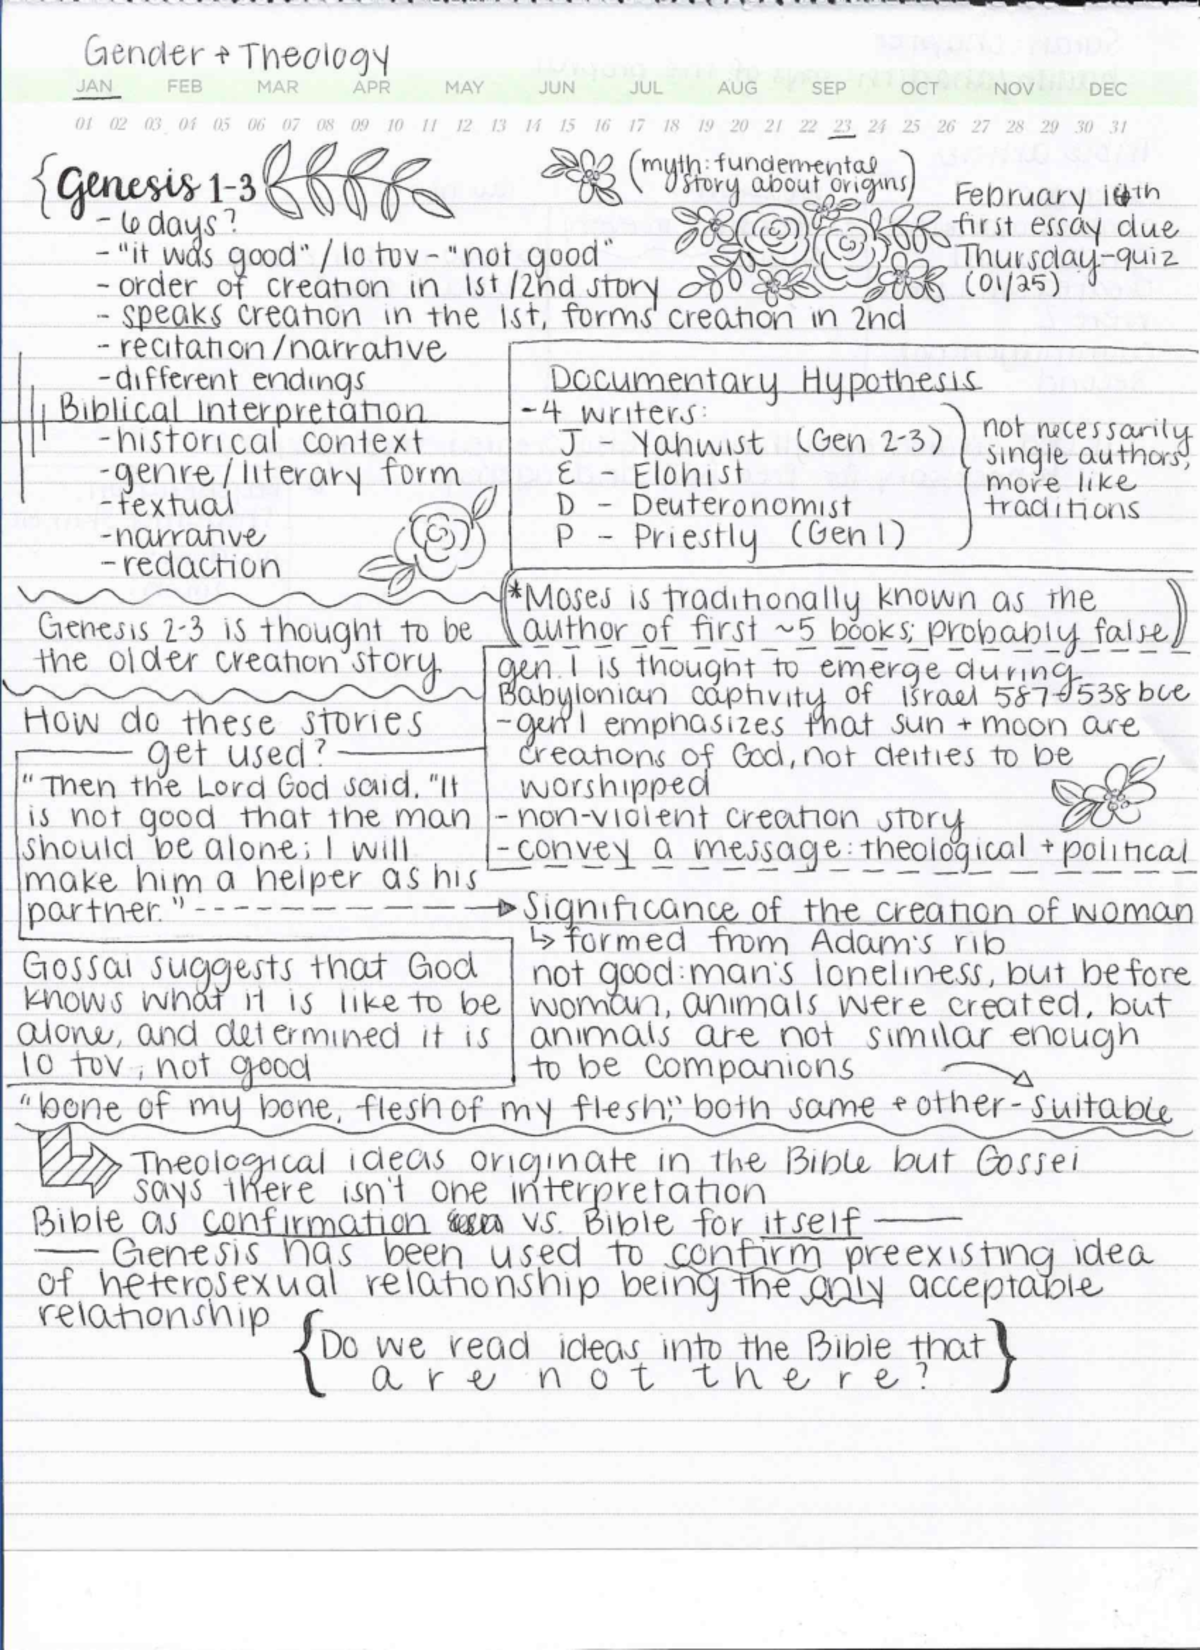 Gender + Theology
JAN FEB MAR APR MAY JUN JUL AUG SEP OCT NOV DEC
01 02 03 04 05 06 07 08 09 10 11 12 13 14 15 16 17 18 19 20 21 22 23 24 25 26 27 28 29 30 31
Genesis 1-3
(myth: fundemental
story about origins)
February 16th
first essay due
Thursday-quiz
(01/25)
- 6 days?
- "it was good" / lo tov - "not good"
- order of creation in 1st/2nd story
- speaks creation in the 1st, forms creation in 2nd
- recitation/narrative
- different endings
Biblical Interpretation
- historical context
- genre/literary form
- textual
- narrative
- redaction
Documentary Hypothesis
- 4 writers:
J - Yahwist (Gen 2-3)
E - Elohist
D - Deuteronomist
P - Priestly (Gen 1)
not necessarily
single authors,
more like
traditions
*Moses is traditionally known as the
author of first ~5 books; probably false
Genesis 2-3 is thought to be
the older creation story
gen. 1 is thought to emerge during
Babylonian captivity of Israel 587-538 bce
- gen 1 emphasizes that sun + moon are
creations of God, not deities to be
worshipped
- non-violent creation story
- convey a message: theological + political
How do these stories
get used?
"Then the Lord God said, "It
is not good that the man
should be alone; I will
make him a helper as his
partner."
Significance of the creation of woman
↳ formed from Adam's rib
not good: man's loneliness, but before
woman, animals were created, but
animals are not similar enough
to be companions
Gossai suggests that God
knows what it is like to be
alone, and determined it is
lo tov, not good
"bone of my bone, flesh of my flesh;" both same + other - suitable
Theological ideas originate in the Bible but Gossei
says there isn't one interpretation
Bible as confirmation vs. Bible for itself
Genesis has been used to confirm preexisting idea
of heterosexual relationship being the only acceptable
relationship
{Do we read ideas into the Bible that
are not there?}